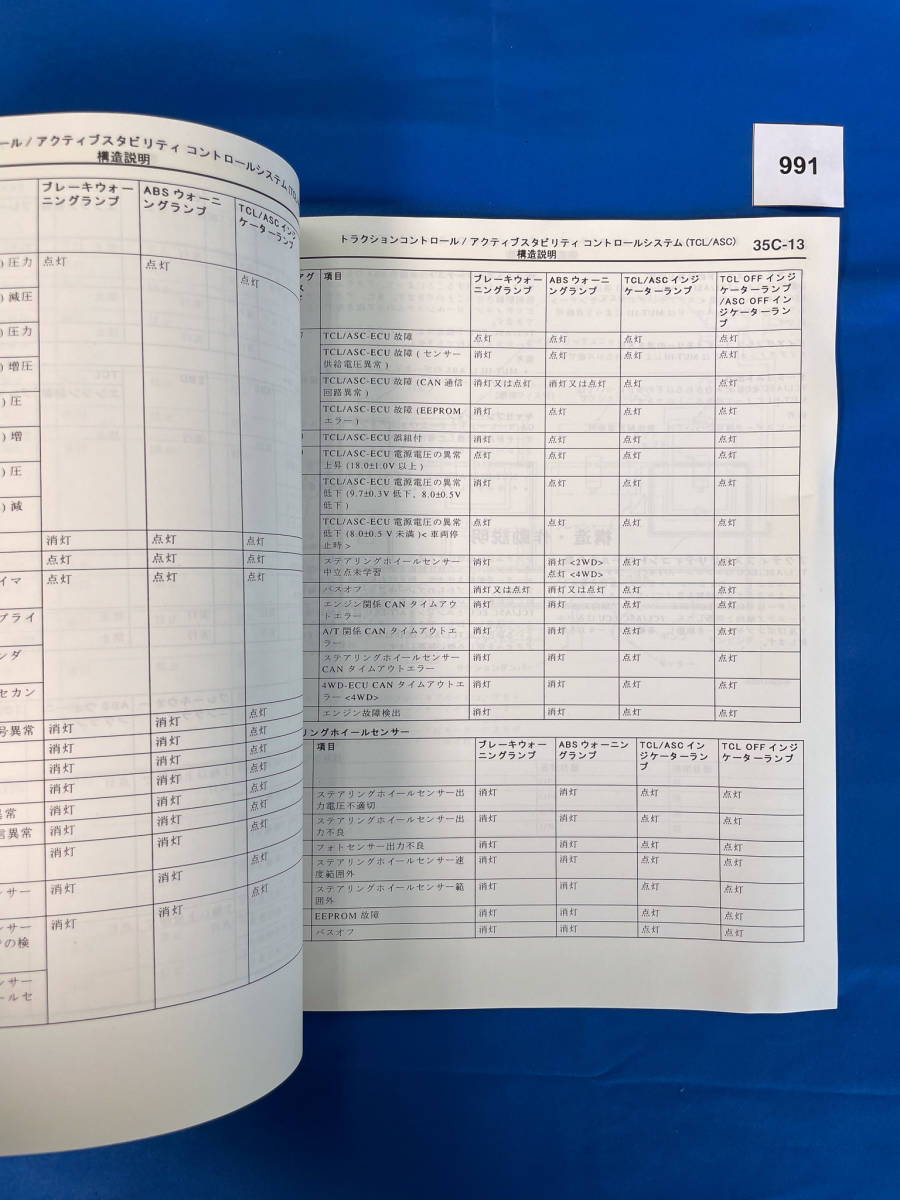 991
ール/アクティブスタビリティ コントロールシステム
構造説明
ブレーキウォーニングランプ ABS ウォーニングランプ TCL/ASC インジケーターランプ
圧力 点灯 点灯 点灯
減圧
圧力
増圧
圧
増
圧
減
消灯 点灯 点灯
点灯 点灯 点灯
イマ 点灯 点灯 点灯
プライ
ンダ
セカン
号異常 消灯 消灯 点灯
消灯 消灯 点灯
消灯 消灯 点灯
消灯 消灯 点灯
異常 消灯 消灯 点灯
信異常 消灯 消灯 点灯
消灯 消灯 点灯
ンサー 消灯 消灯 点灯
ンサー 消灯 消灯
での検
ンサー
ールセ
トラクションコントロール/アクティブスタビリティ コントロールシステム(TCL/ASC) 35C-13
構造説明
項目 ブレーキウォーニングランプ ABS ウォーニングランプ TCL/ASC インジケーターランプ TCL OFF インジケーターランプ/ASC OFF インジケーターランプ
TCL/ASC-ECU 故障 点灯 点灯 点灯 点灯
TCL/ASC-ECU 故障 (センサー供給電圧異常) 消灯 点灯 点灯 点灯
TCL/ASC-ECU 故障 (CAN 通信回路異常) 消灯又は点灯 消灯又は点灯 点灯 点灯
TCL/ASC-ECU 故障 (EEPROM エラー) 消灯 点灯 点灯 点灯
TCL/ASC-ECU 誤組付 消灯 点灯 点灯 点灯
TCL/ASC-ECU 電源電圧の異常上昇 (18.0±1.0V 以上) 点灯 点灯 点灯 点灯
TCL/ASC-ECU 電源電圧の異常低下 (9.7±0.3V 低下、8.0±0.5V 低下) 消灯 点灯 点灯 点灯
TCL/ASC-ECU 電源電圧の異常低下 (8.0±0.5 V 未満)<車両停止時> 点灯 点灯 点灯 点灯
ステアリングホイールセンサー中立点未学習 消灯 消灯 <2WD> 点灯 <4WD> 点灯 点灯
バスオフ 消灯又は点灯 消灯又は点灯 点灯 点灯
エンジン関係 CAN タイムアウトエラー 消灯 消灯 点灯 点灯
A/T 関係 CAN タイムアウトエラー 消灯 消灯 点灯 点灯
ステアリングホイールセンサー CAN タイムアウトエラー 消灯 消灯 点灯 点灯
4WD-ECU CAN タイムアウトエラー <4WD> 消灯 消灯 点灯 点灯
エンジン故障検出 消灯 消灯 点灯 点灯
リングホイールセンサー
項目 ブレーキウォーニングランプ ABS ウォーニングランプ TCL/ASC インジケーターランプ TCL OFF インジケーターランプ
ステアリングホイールセンサー出力電圧不適切 消灯 消灯 点灯 点灯
ステアリングホイールセンサー出力不良 消灯 消灯 点灯 点灯
フォトセンサー出力不良 消灯 消灯 点灯 点灯
ステアリングホイールセンサー速度範囲外 消灯 消灯 点灯 点灯
ステアリングホイールセンサー範囲外 消灯 消灯 点灯 点灯
EEPROM 故障 消灯 消灯 点灯 点灯
バスオフ 消灯 消灯 点灯 点灯